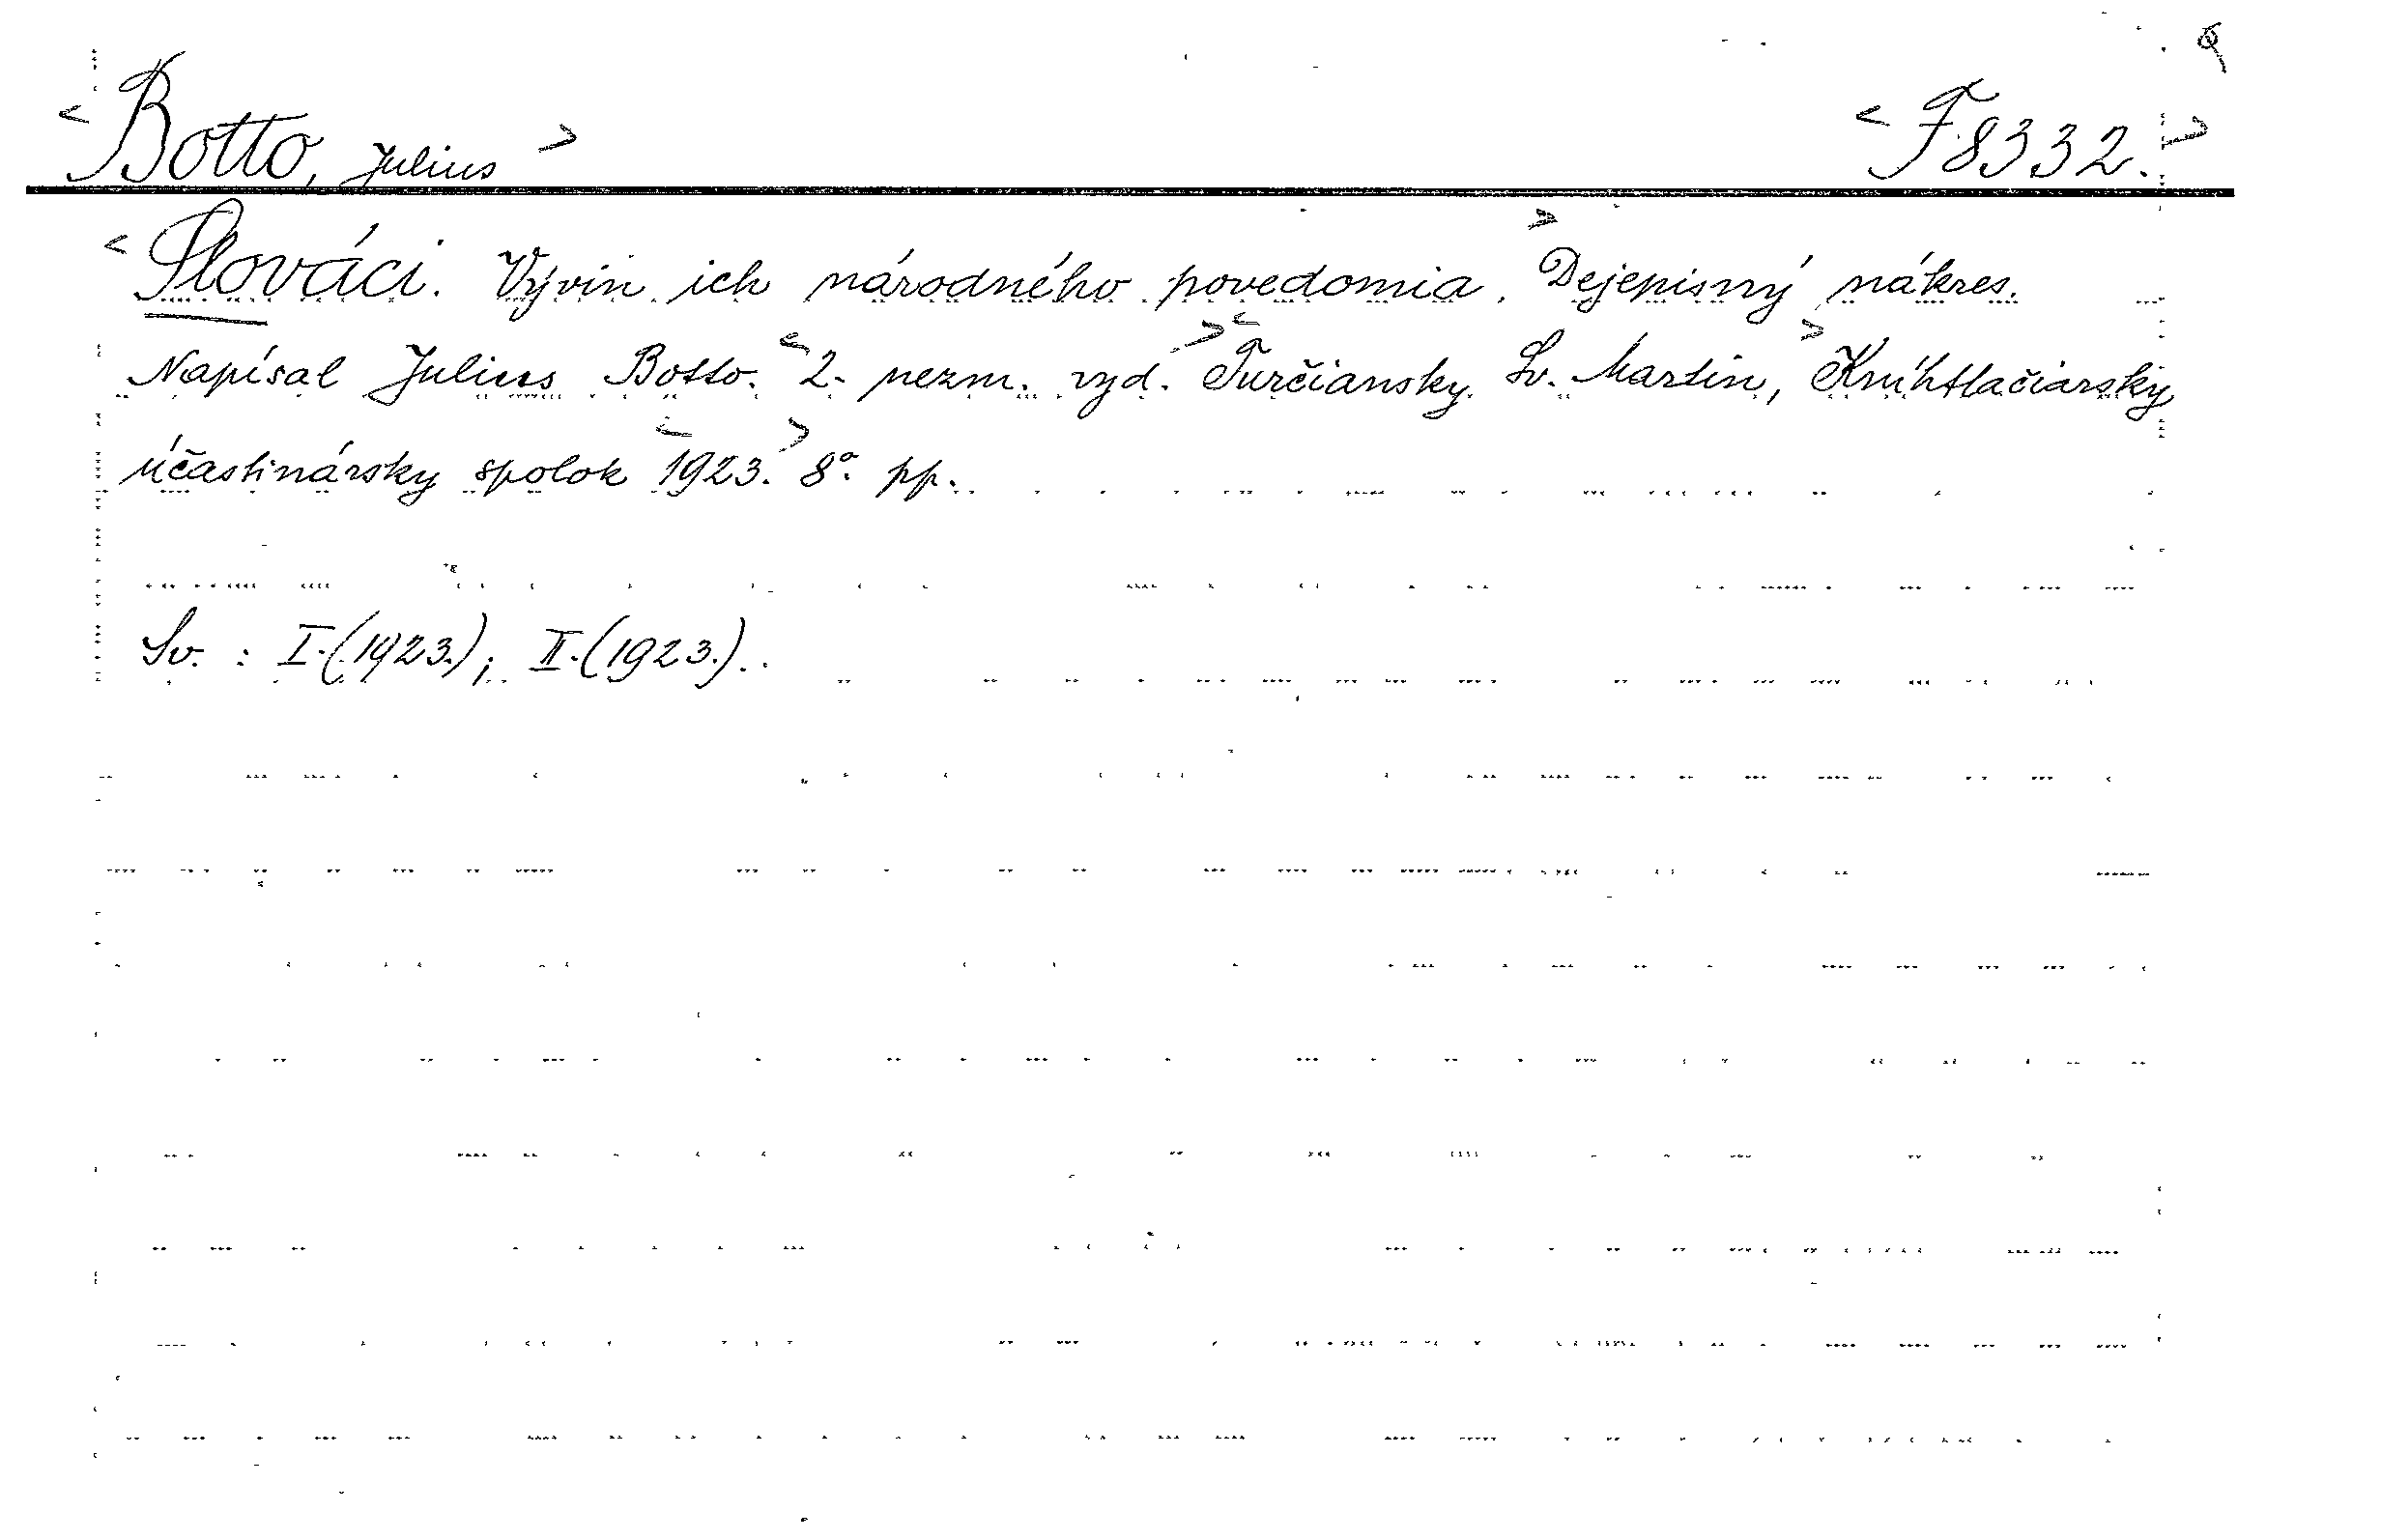 <Botto, Julius> <F.8332.>
<Slováci. Vývin ich národného povedomia.> Dejepisný nákres.
Napísal Julius Botto. <2. nezm. vyd.> <Turčiansky Sv. Martin,> Kníhtlačiarsky
účastinársky spolok <1923.> 8°. pp.
Sv. : I.(1923.); II.(1923.).